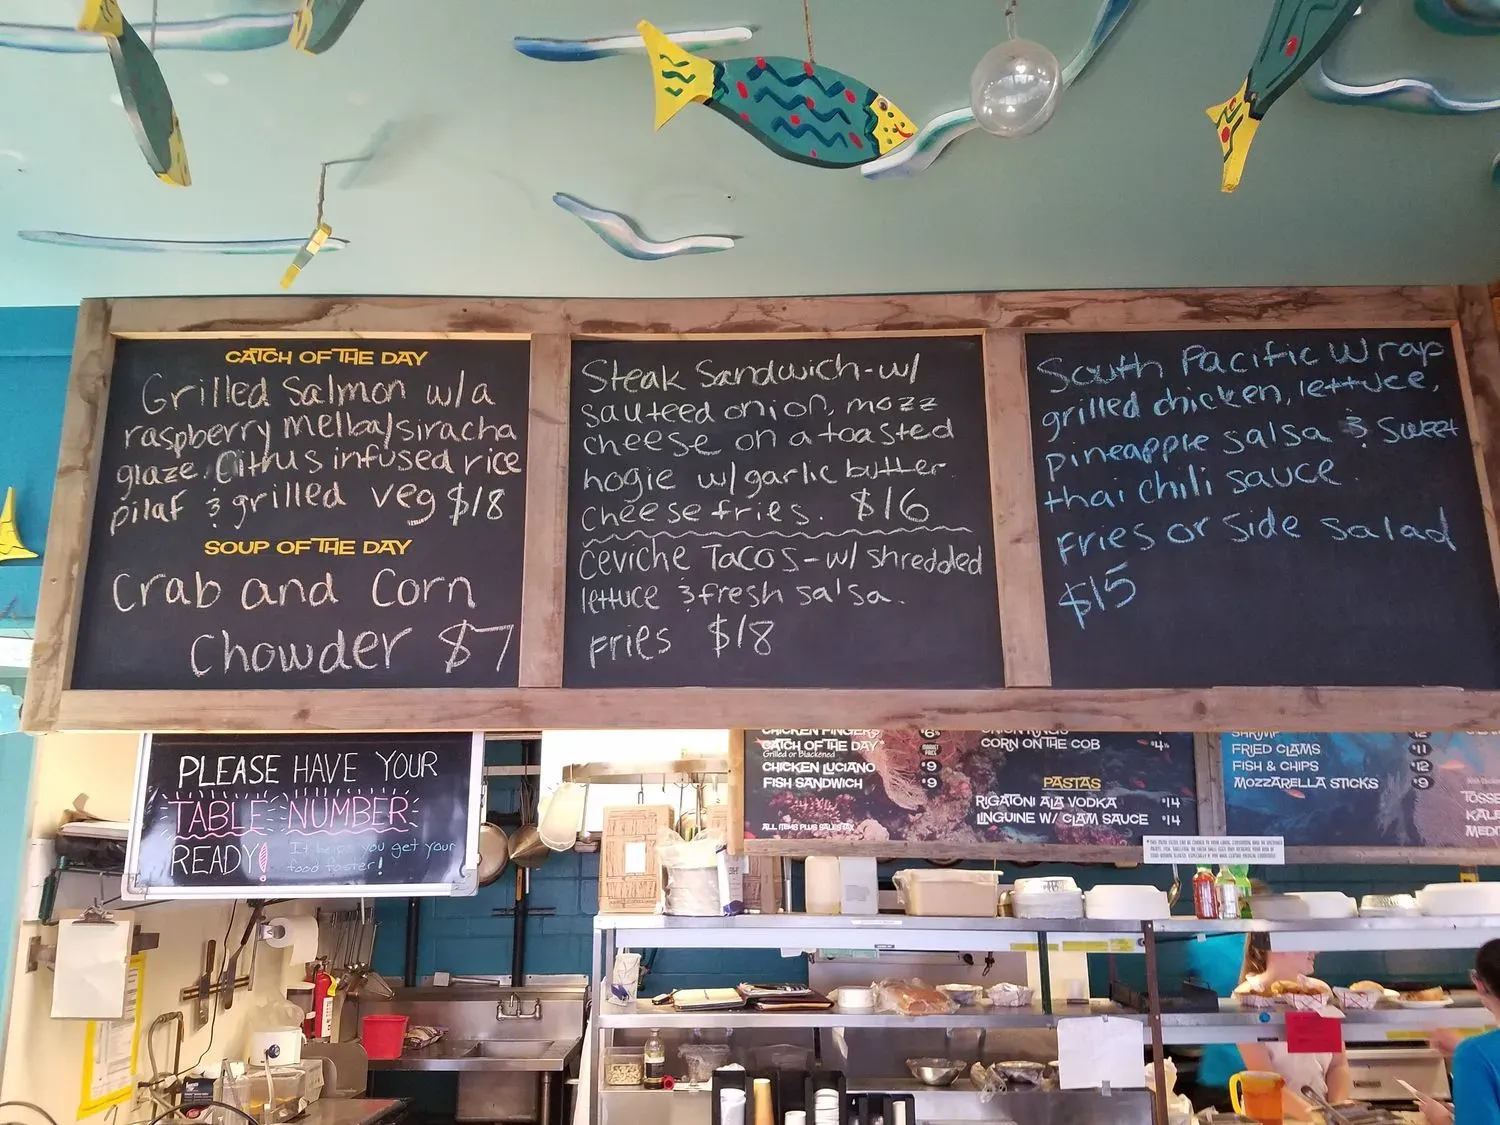 CATCH OF THE DAY
Grilled Salmon w/a
raspberry melba/siracha
glaze. Citrus infused rice
pilaf & grilled veg $18
SOUP OF THE DAY
Crab and Corn
Chowder $7
Steak Sandwich-w/
sauteed onion, mozz
cheese on a toasted
hogie w/garlic butter.
Cheese fries. $16
Ceviche Tacos-w/ shredded
lettuce & fresh salsa.
Fries $18
South Pacific Wrap
grilled chicken, lettuce,
pineapple salsa & Sweet
thai chili sauce.
Fries or Side Salad
$15
PLEASE HAVE YOUR
TABLE NUMBER
READY!
It helps you get your
food faster!
CHICKEN FINGERS
CATCH OF THE DAY* MARKET PRICE
Grilled or Blackened
CHICKEN LUCIANO $9
FISH SANDWICH $9
ALL ITEMS PLUS SALES TAX
ONION RINGS
CORN ON THE COB
PASTAS
RIGATONI ALA VODKA $14
LINGUINE W/ CLAM SAUCE $14
SHRIMP $12
FRIED CLAMS $11
FISH & CHIPS $12
MOZZARELLA STICKS $9